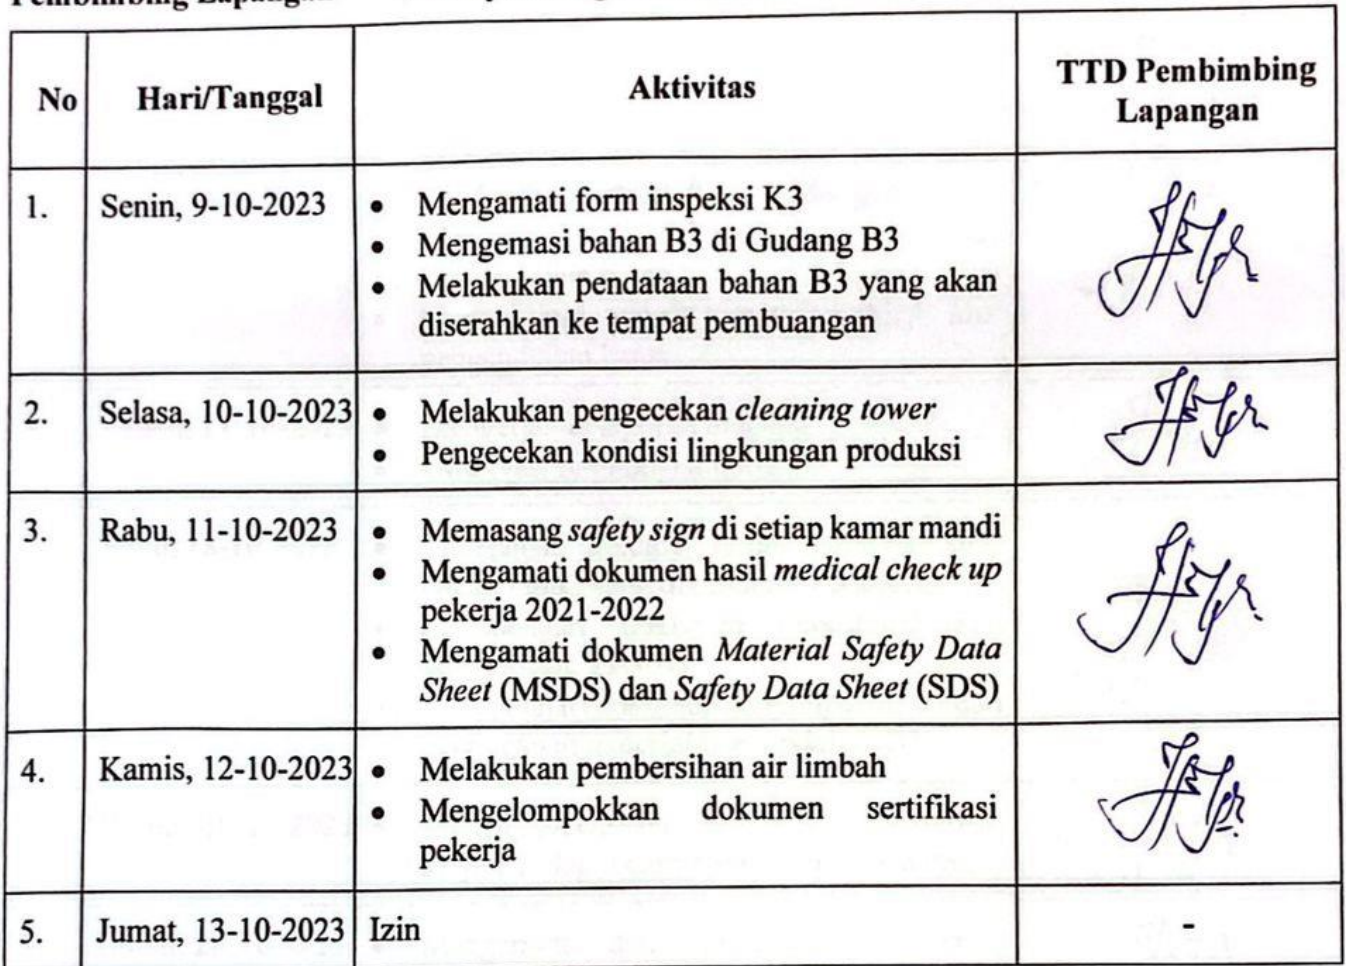 Pembimbing Lapangan
No
Hari/Tanggal
Aktivitas
TTD Pembimbing
Lapangan
1.
Senin, 9-10-2023
• Mengamati form inspeksi K3
• Mengemasi bahan B3 di Gudang B3
• Melakukan pendataan bahan B3 yang akan
diserahkan ke tempat pembuangan
2.
Selasa, 10-10-2023
• Melakukan pengecekan cleaning tower
• Pengecekan kondisi lingkungan produksi
3.
Rabu, 11-10-2023
• Memasang safety sign di setiap kamar mandi
• Mengamati dokumen hasil medical check up
pekerja 2021-2022
• Mengamati dokumen Material Safety Data
Sheet (MSDS) dan Safety Data Sheet (SDS)
4.
Kamis, 12-10-2023
• Melakukan pembersihan air limbah
• Mengelompokkan dokumen sertifikasi
pekerja
5.
Jumat, 13-10-2023
Izin
-